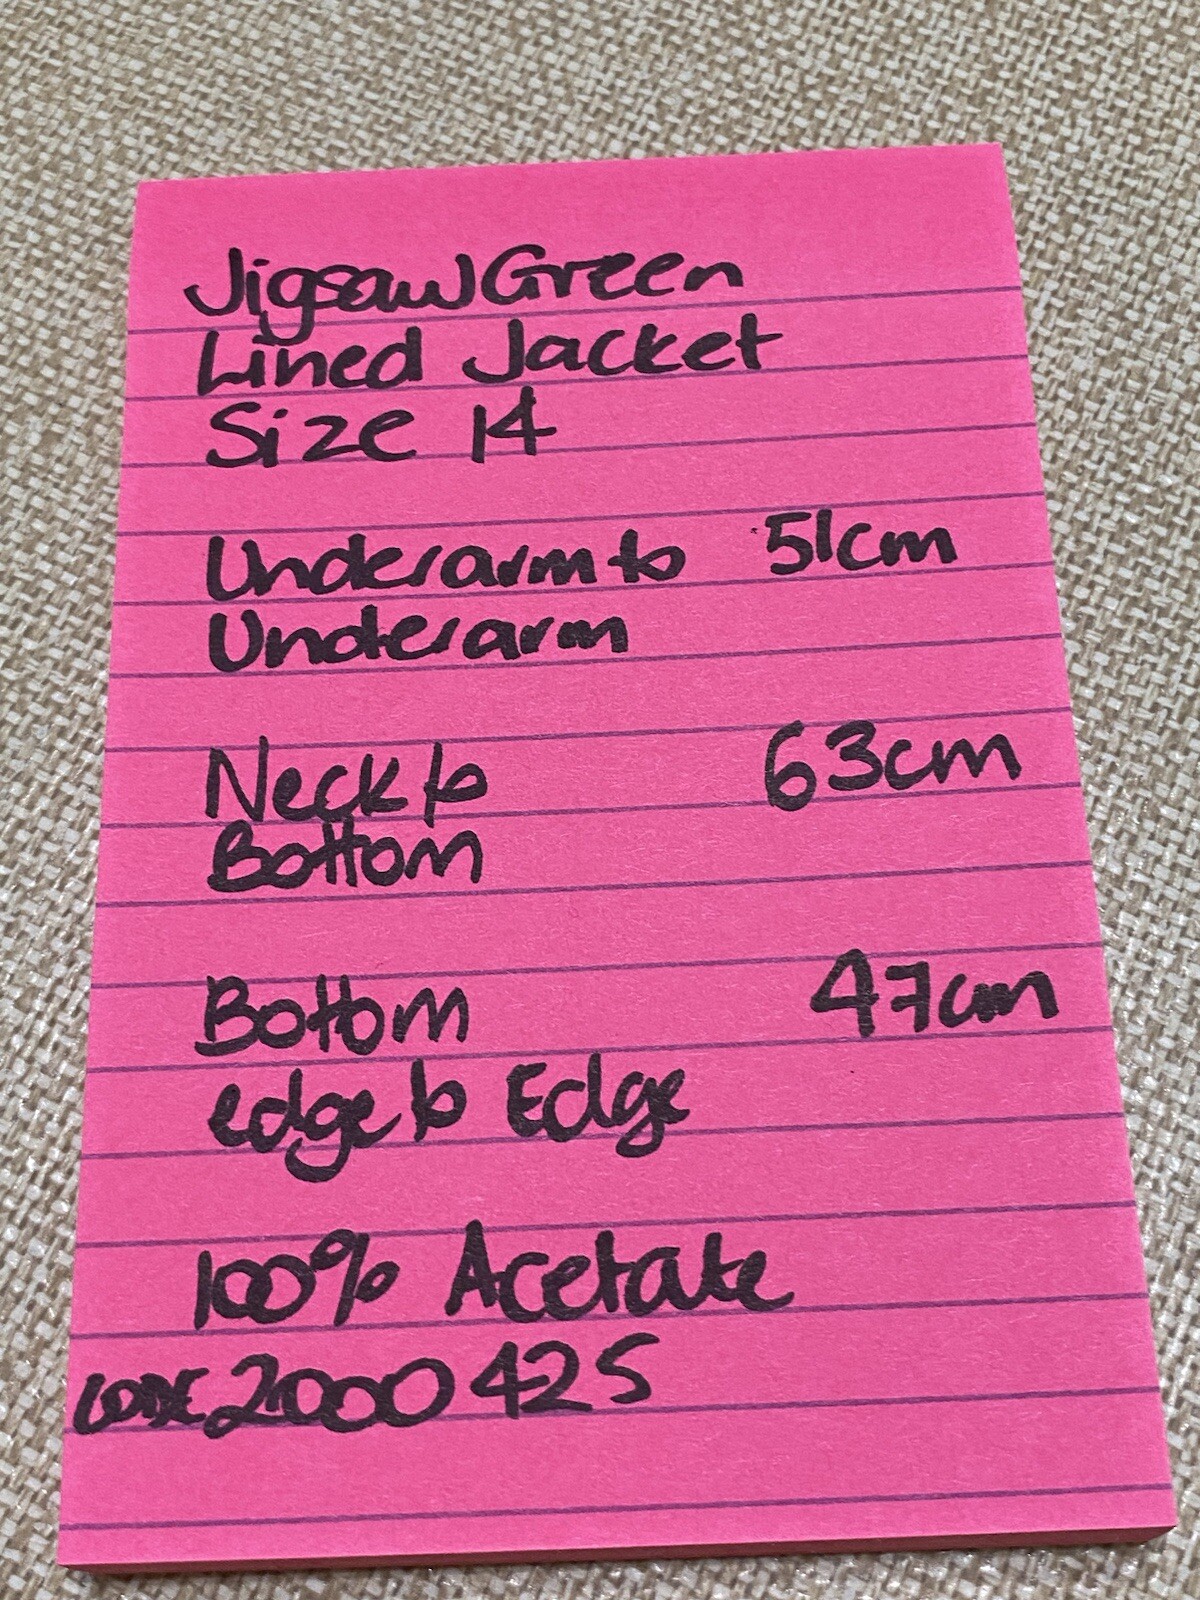 Jigsaw Green
Lined Jacket
Size 14
Underarm to 51cm
Underarm
Neck to 63cm
Bottom
Bottom 47cm
edge to Edge
100% Acetate
CODE 2000425